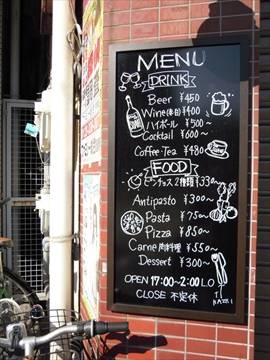 MENU
DRINK
Beer ¥450
Wine(赤白) ¥400
ハイボール ¥500~
Cocktail ¥600~
Coffee・Tea ¥480
FOOD
ピンチョス 2種類 ¥330~
Antipasto ¥300~
Pasta ¥750~
Pizza ¥850~
Carne 肉料理 ¥550~
Dessert ¥300~
OPEN 17:00~2:00 LO
CLOSE 不定休